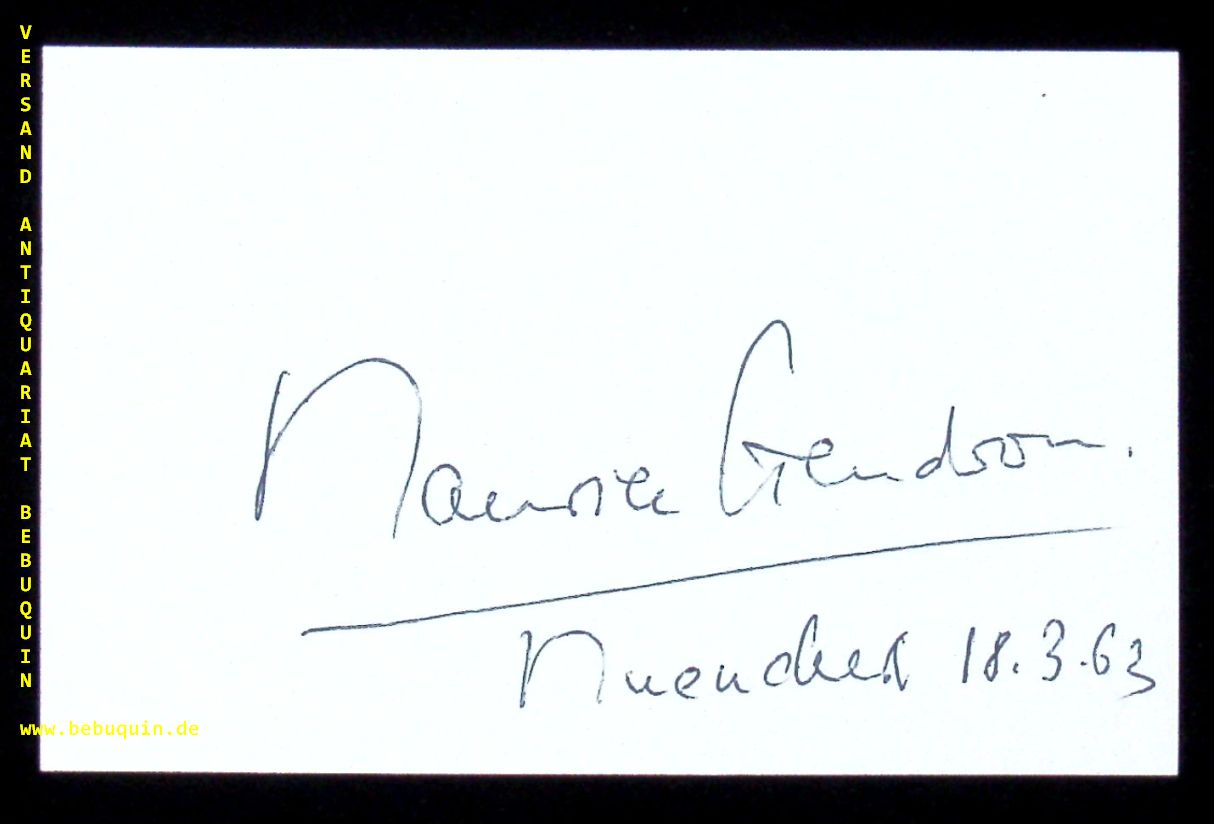 VERSAND ANTIQUARIAT BEBUQUIN
www.bebuquin.de
Maurice Gendron.
Muenchen 18.3.63